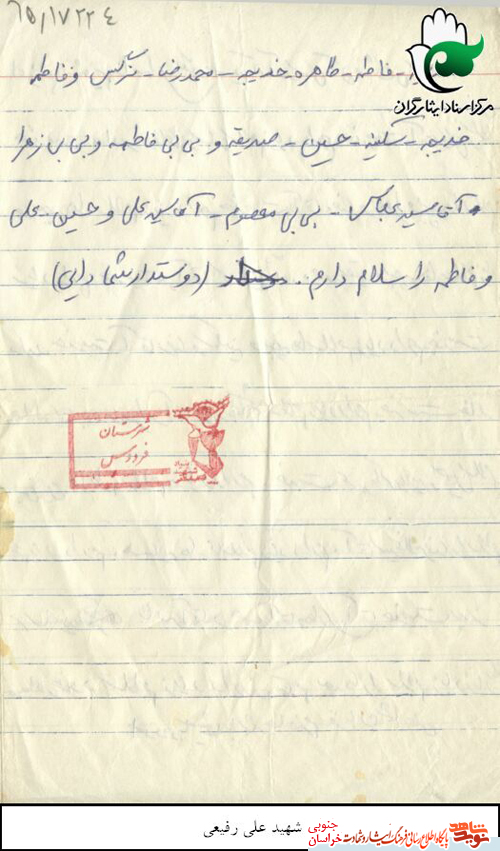 ۶۵/۱۷۲۲۴
مرکز اسناد ایثارگران
- فاطمه - طاهره - خدیجه - محمدرضا - نرگس و فاطمه
خدیجه - سکینه - حسین - صدیقه و بی بی فاطمه و بی بی زهرا
آقا سید عباس - بی بی معصوم - آقا سید علی و حسین - علی
و فاطمه را سلام دارم . (دوستدار شما دایی)
شهرستان
فردوس
شهید علی رفیعی
نوید شاهد پایگاه اطلاع رسانی فرهنگ ایثار و شهادت خراسان جنوبی